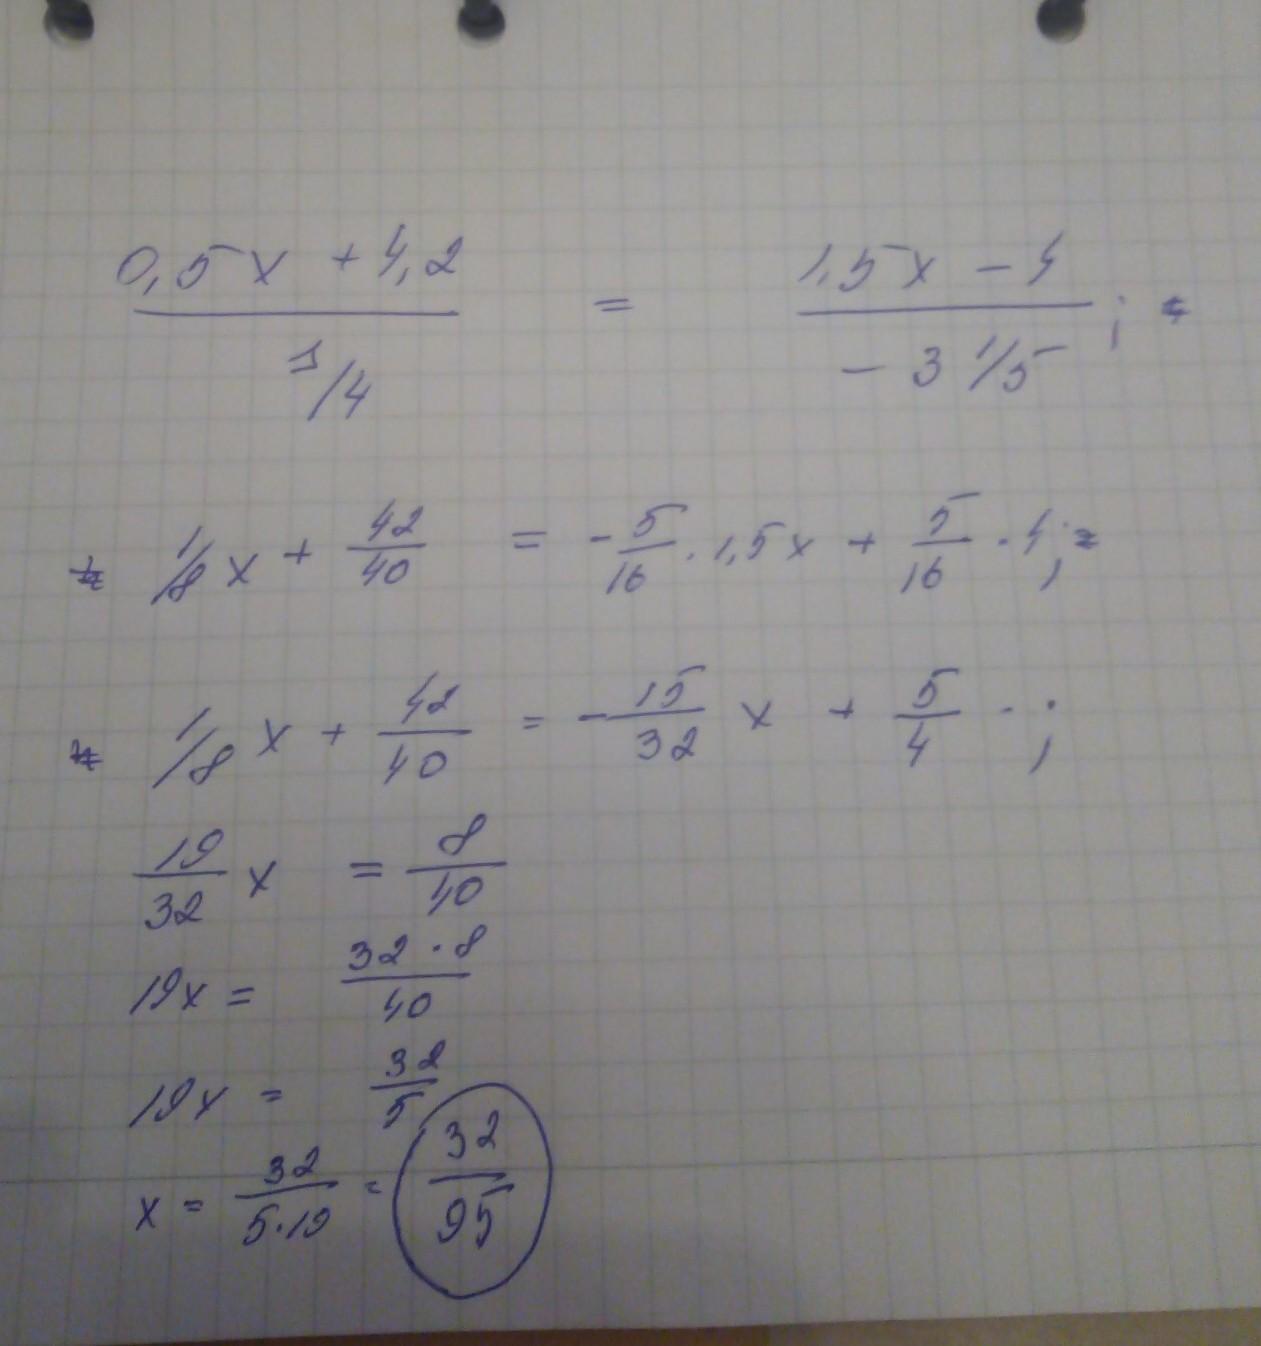 0,5x + 4,2 / 1/4 = 1,5x - 4 / - 3 1/5 ;
1/8 x + 42/40 = - 5/16 · 1,5x + 5/16 · 4;
1/8 x + 42/40 = - 15/32 x + 5/4 · ;
19/32 x = 8/40
19x = 32 · 8 / 40
19x = 32/5
x = 32 / 5·19 = 32/95